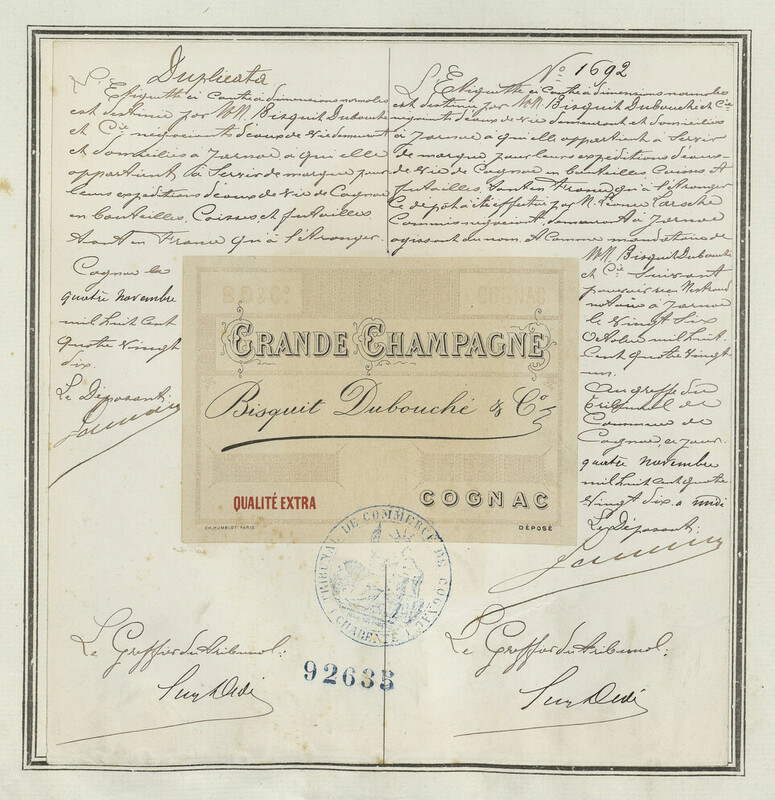 Duplicata
L'Etiquette ci Contre à dimensions normales
est destinée par MM. Bisquit Dubouché
et Cie négociants d'eaux de vie demeurant
et domiciliés à Jarnac à qui elle
appartient à Servir de marque pour
leurs expéditions d'eaux de vie de Cognac
en bouteilles, Caisses et futailles
tant en France qu'à l'Etranger.
Cognac le
quatre novembre
mil huit cent
quatre vingt
dix.
Le Déposant
No 1692
L'Etiquette ci Contre à dimensions normales
est destinée par MM. Bisquit Dubouché et Cie
négociants d'eaux de vie demeurant et domiciliés
à Jarnac à qui elle appartient à Servir
de marque pour leurs expéditions d'eaux-
de vie de Cognac en bouteilles Caisses et
futailles, tant en France qu'à l'Etranger
Le dépôt a été effectué par M.
Commis négociant, demeurant à Jarnac
agissant au nom et comme mandataire de
MM. Bisquit Dubouché
et Cie Suivant
pouvoir
notaire à Jarnac
le vingt six
Octobre mil huit
Cent quatre vingt
un.
Au greffe du
Tribunal de
Commerce de
Cognac, ce jour
quatre novembre
mil huit cent quatre
vingt dix à midi
Le Déposant:
B.D.&Co
COGNAC
GRANDE CHAMPAGNE
Bisquit Dubouché & Co
QUALITÉ EXTRA
COGNAC
CH. HUMBLOT PARIS
DÉPOSÉ
TRIBUNAL DE COMMERCE DE COGNAC
(CHARENTE INFRE)
92635
Le Greffier du tribunal:
Le Greffier du tribunal: